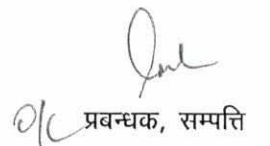 O/C प्रबन्धक, सम्पत्ति